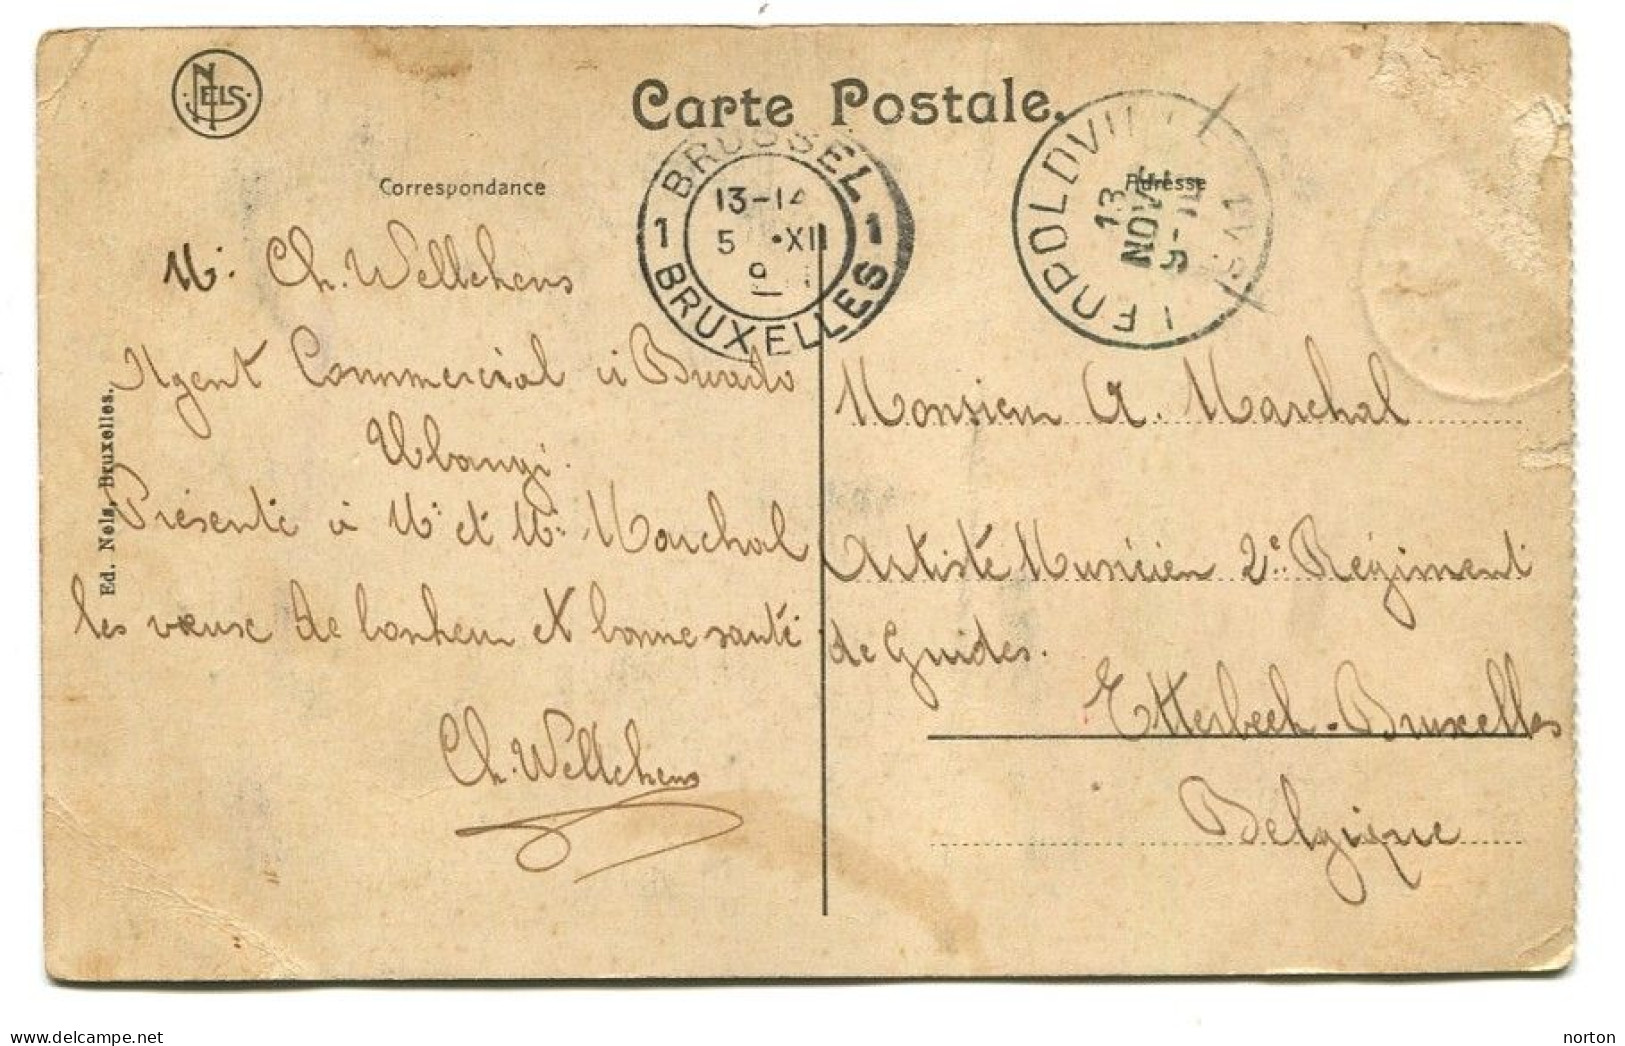 NELS
Carte Postale.
Correspondance
Adresse
BRUSSEL
1 13-14 1
5 XII
BRUXELLES
LEOPOLDVILLE
13 NOV
9-11
Mr Ch. Wellekens
Agent Commercial à
Ubangi.
Présente à Mr et Me Marchal
les vœux de bonheur et bonne santé
Ch. Wellekens
Ed. Nels, Bruxelles.
Monsieur A. Marchal
Artiste Musicien 2e Régiment
de Guides.
Etterbeek-Bruxelles
Belgique
norton
www.delcampe.net